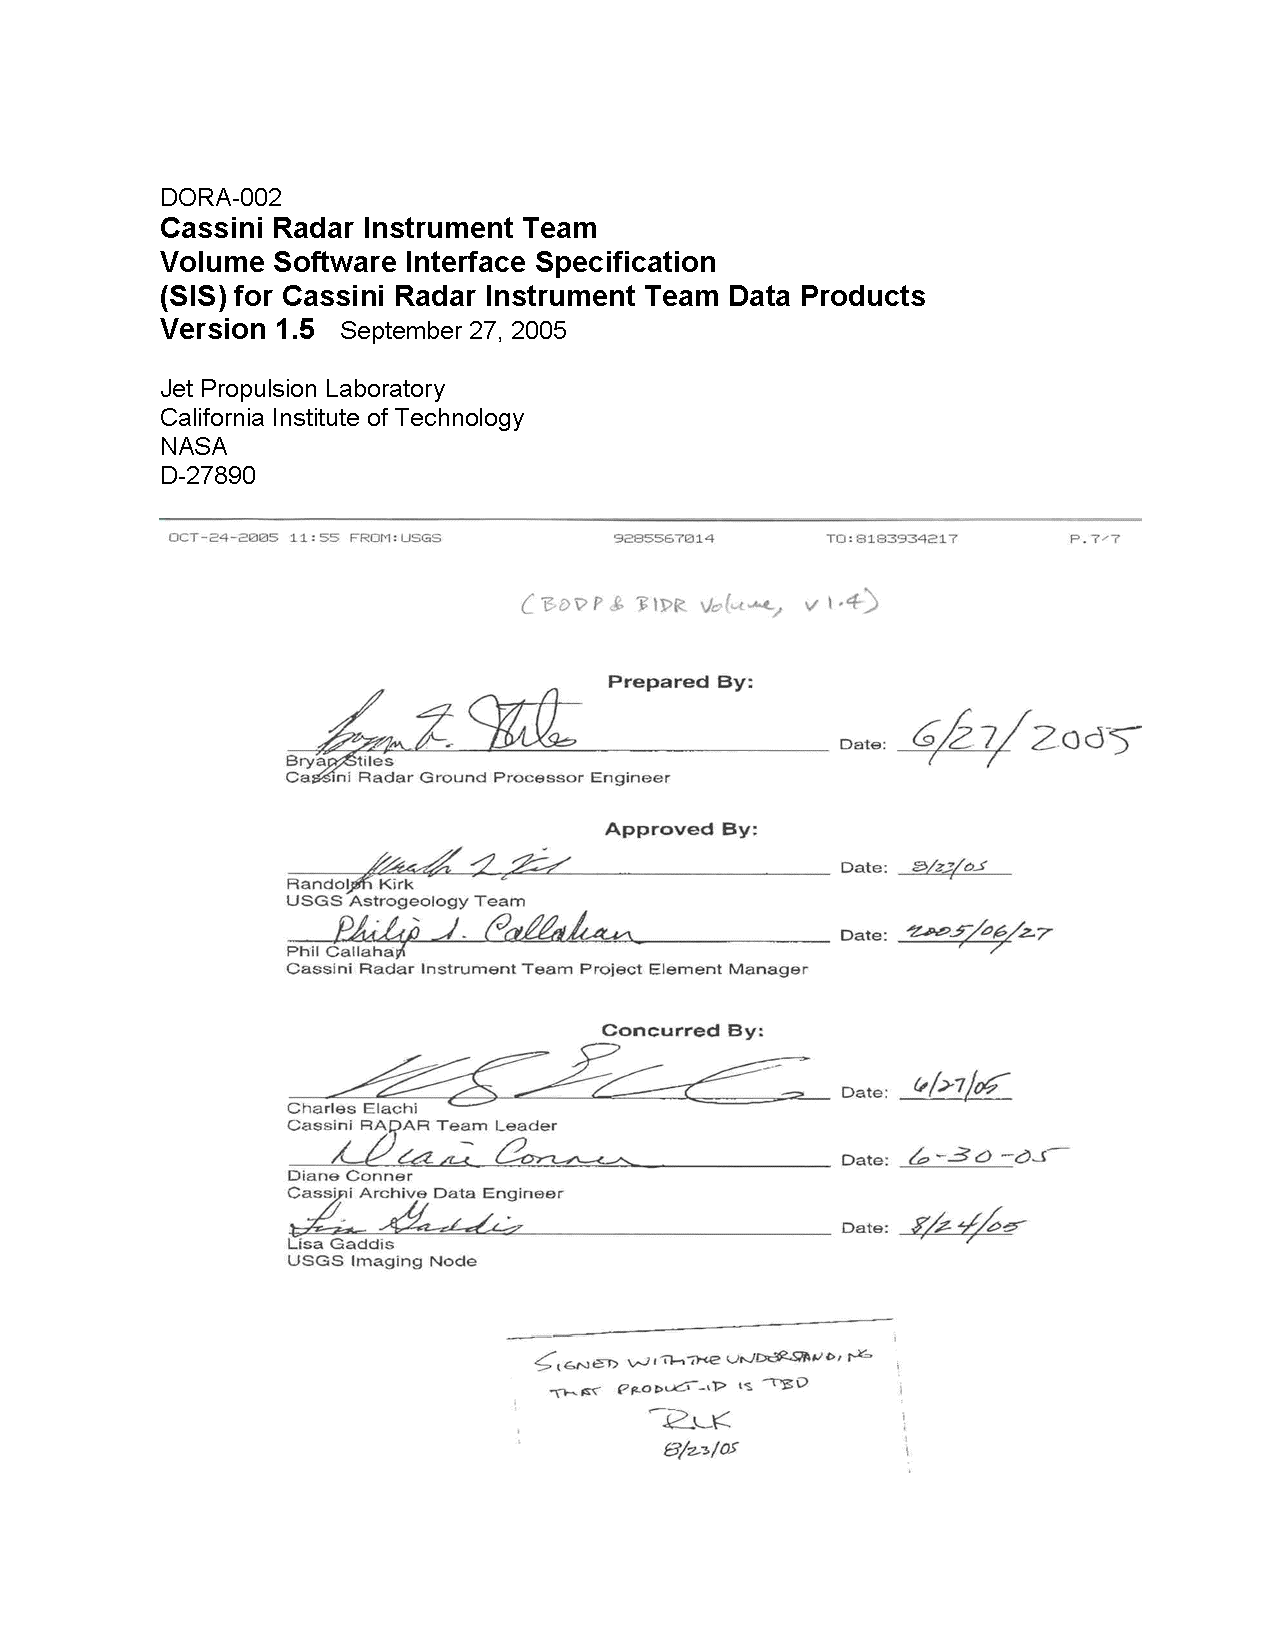 DORA-002
Cassini Radar Instrument Team
Volume Software Interface Specification
(SIS) for Cassini Radar Instrument Team Data Products
Version 1.5 September 27, 2005
Jet Propulsion Laboratory
California Institute of Technology
NASA
D-27890
OCT-24-2005 11:55 FROM:USGS 9285567014 TO:8183934217 P.7/7
(BODP & BIDR Volume, v 1.4)
Prepared By:
Bryan W. Stiles Date: 6/27/2005
Bryan Stiles
Cassini Radar Ground Processor Engineer
Approved By:
Date: 8/23/05
Randolph Kirk
USGS Astrogeology Team
Philip S. Callahan Date: 2005/06/27
Phil Callahan
Cassini Radar Instrument Team Project Element Manager
Concurred By:
Date: 6/27/05
Charles Elachi
Cassini RADAR Team Leader
Diane Conner Date: 6-30-05
Diane Conner
Cassini Archive Data Engineer
Lisa Gaddis Date: 8/24/05
Lisa Gaddis
USGS Imaging Node
SIGNED WITH THE UNDERSTANDING
THAT PRODUCT-ID IS TBD
RLK
8/23/05